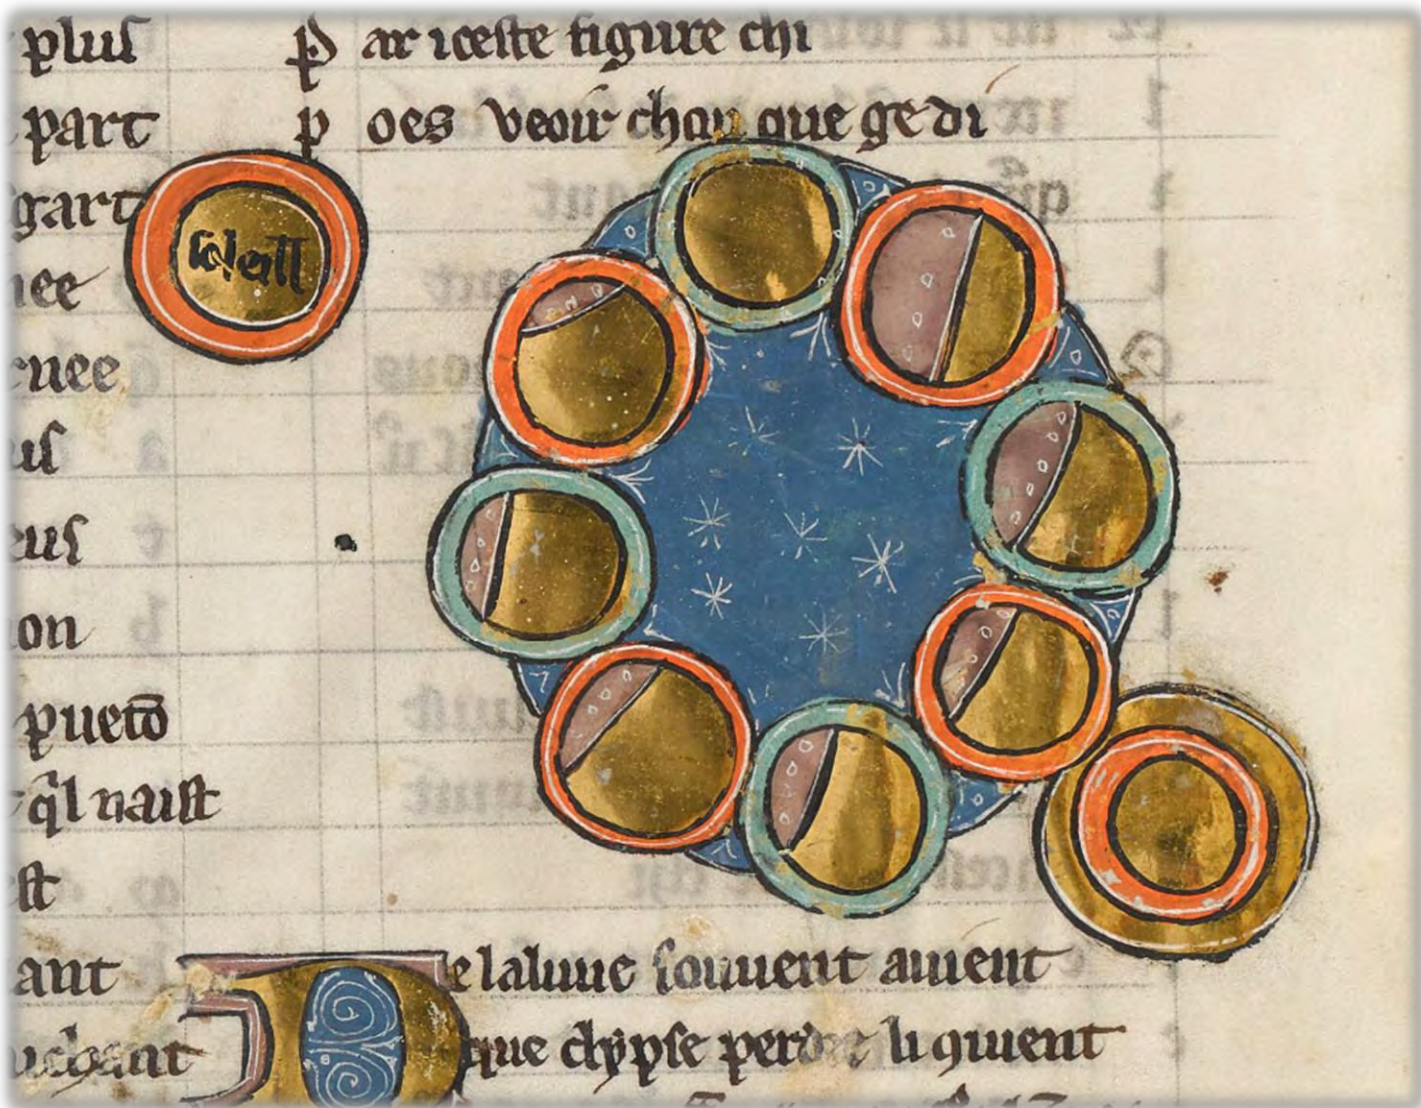 plus
part
gart
nee
enee
us
eus
ion
puetō
q̃l naist
est
ant
uchant
Par iceste figure chi
poes veoir chou que ge di
soleill
De la lune souuent auient
que clypse perdre li quient